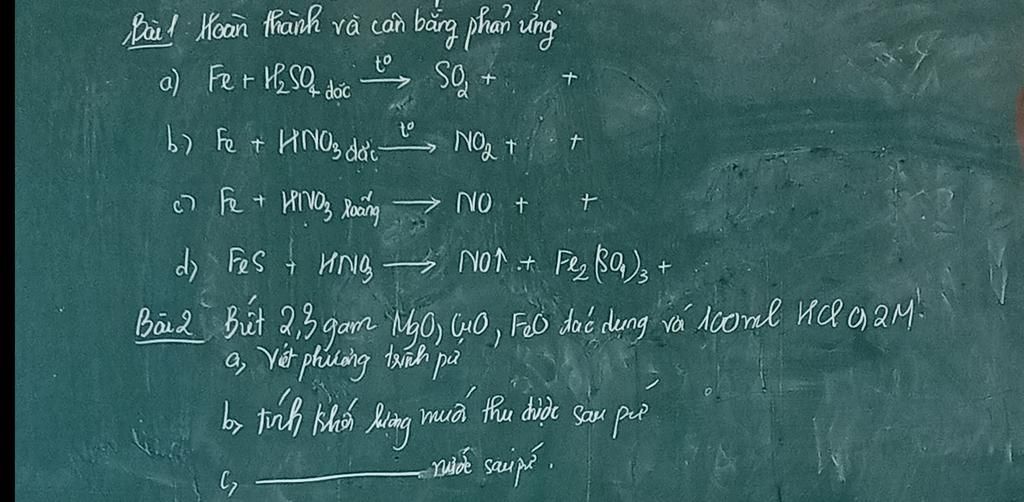 Bài 1 Hoàn thành và cân bằng phản ứng
a) Fe + H₂SO₄ đặc t° → SO₂ + +
b) Fe + HNO₃ đặc t° → NO₂ + +
c) Fe + HNO₃ loãng → NO + +
d) FeS + HNO₃ → NO↑ + Fe₂(SO₄)₃ +
Bài 2 Biết 2,3 gam MgO, CuO, FeO tác dụng với 100ml HCl 0,2M.
a, Viết phương trình pứ
b, tính khối lượng muối thu được sau pứ
c, ———— nước sau pứ.